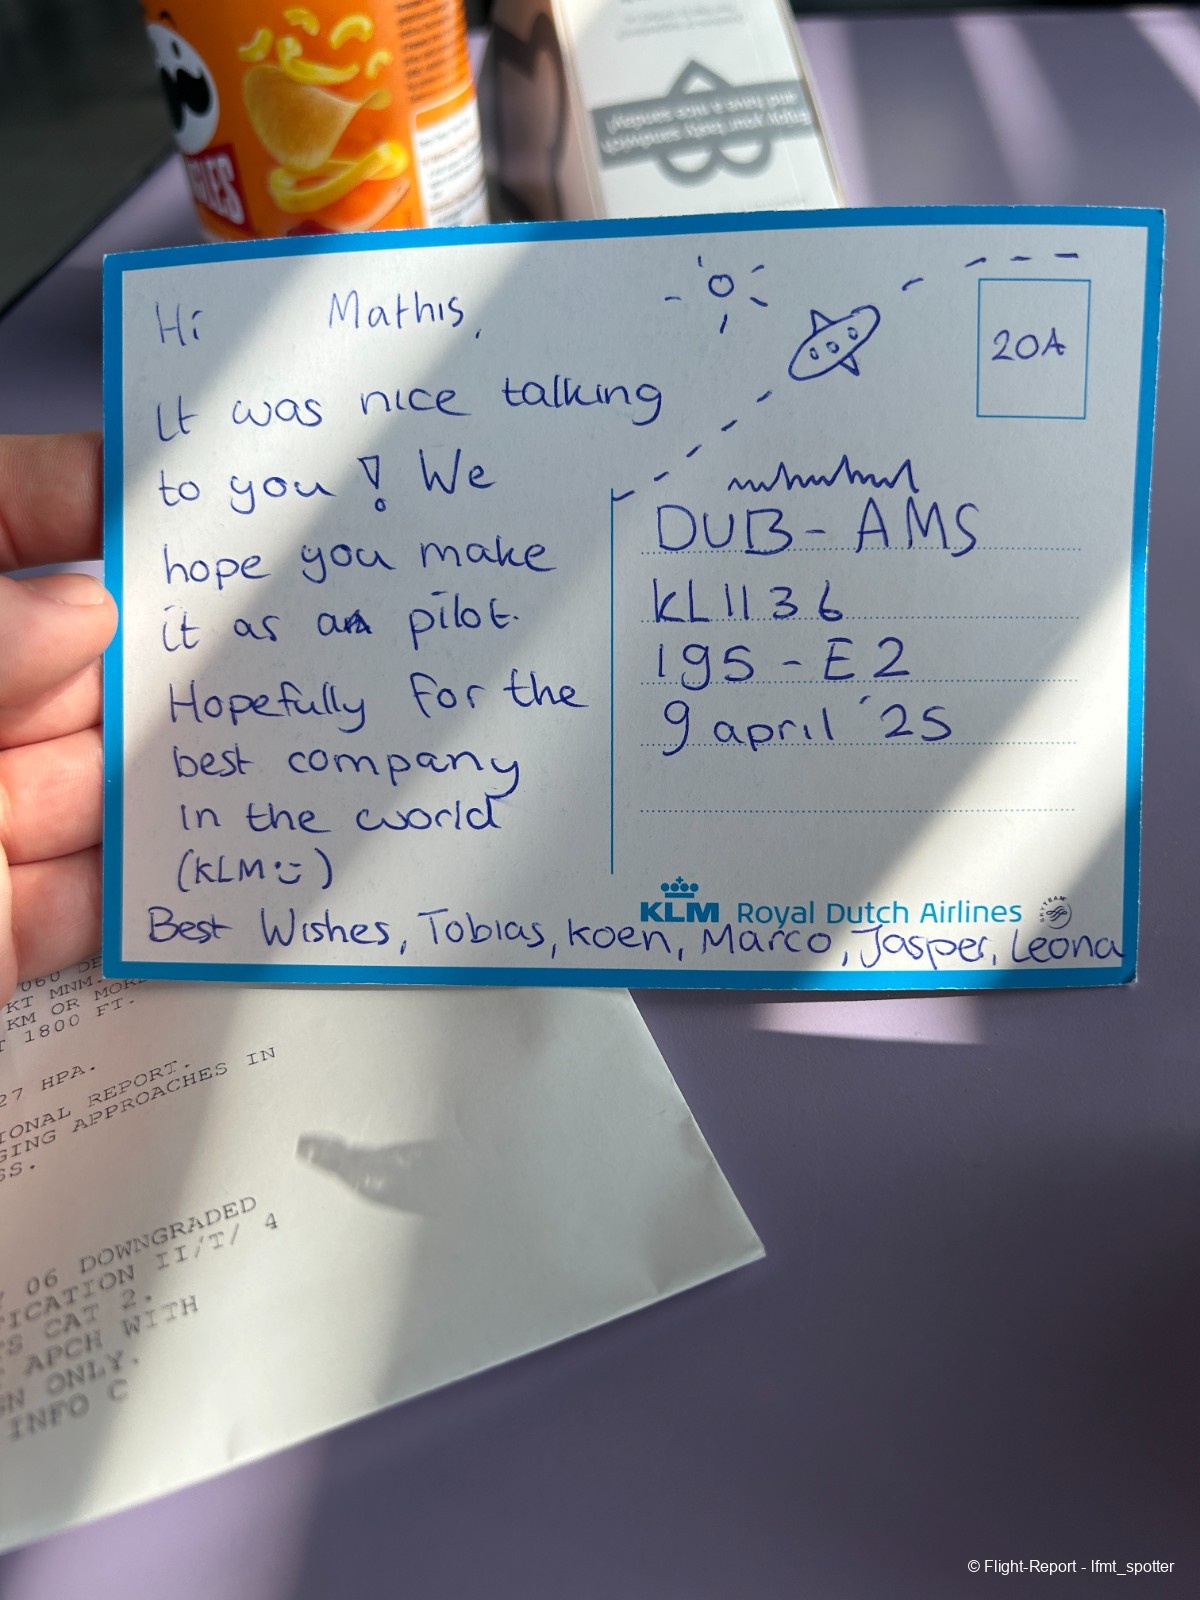 Enjoy your tasty sandwich
and have a nice sunday!
Hi Mathis,
It was nice talking
to you! We
hope you make
it as a pilot.
Hopefully for the
best company
in the world
(KLM :))
Best Wishes, Tobias, Koen, Marco, Jasper, Leona
20A
DUB - AMS
KL1136
195 - E2
9 april '25
KLM Royal Dutch Airlines
SKYTEAM
060 DE
KT MNM.
KM OR MORE
T 1800 FT.
27 HPA.
IONAL REPORT.
GING APPROACHES IN
SS.
06 DOWNGRADED
FICATION II/T/ 4
TS CAT 2.
APCH WITH
GN ONLY.
INFO C
© Flight-Report - lfmt_spotter